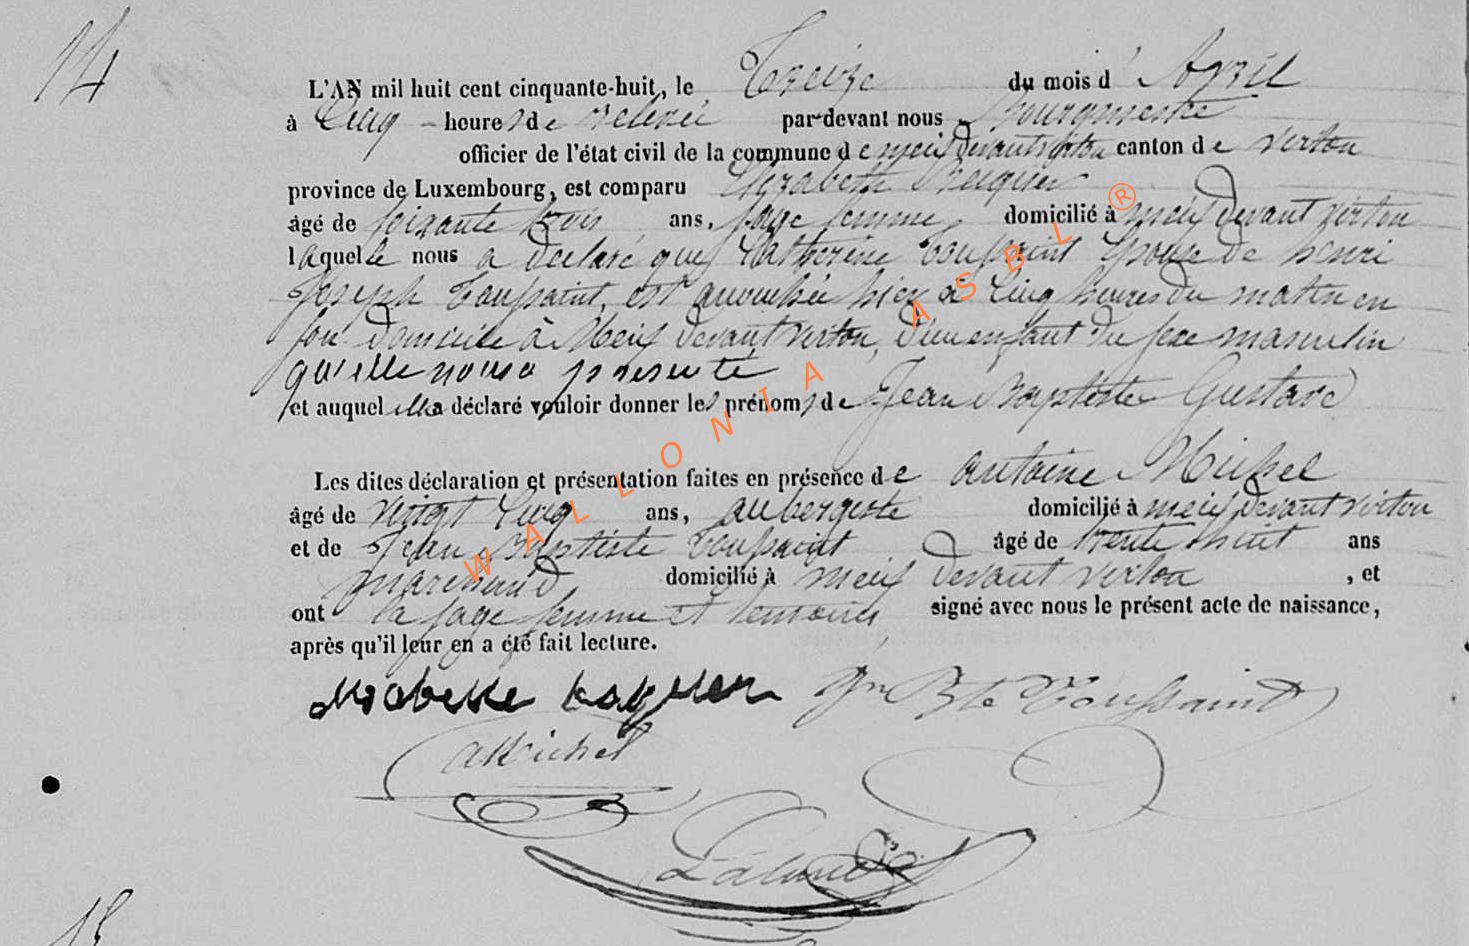 14
L'AN mil huit cent cinquante-huit, le Treize du mois d' Avril
à Cinq heures de relevée par-devant nous Bourgmestre
officier de l'état civil de la commune de meix devant virton canton de virton
province de Luxembourg, est comparu Elizabeth
âgé de soixante trois ans, sage femme domicilié à meix devant virton
laquelle nous a déclaré que Catherine Toussaint Epouse de henri
Joseph Toussaint, est accouchée hier à Cinq heures du matin en
son domicile à Meix devant virton, d'un enfant du sexe masculin
qu'elle nous a présenté
et auquel elle a déclaré vouloir donner les prénoms de Jean Baptiste Gustave
Les dites déclaration et présentation faites en présence de antoine Michel
âgé de vingt Cinq ans, aubergiste domicilié à meix devant virton
et de Jean Baptiste Toussaint âgé de trente huit ans
marchand domicilié à meix devant virton , et
ont la sage femme et temoins signé avec nous le présent acte de naissance,
après qu'il leur en a été fait lecture.
Jn Bte Toussaint
AMichel
15
WALLONIA ASBL ®